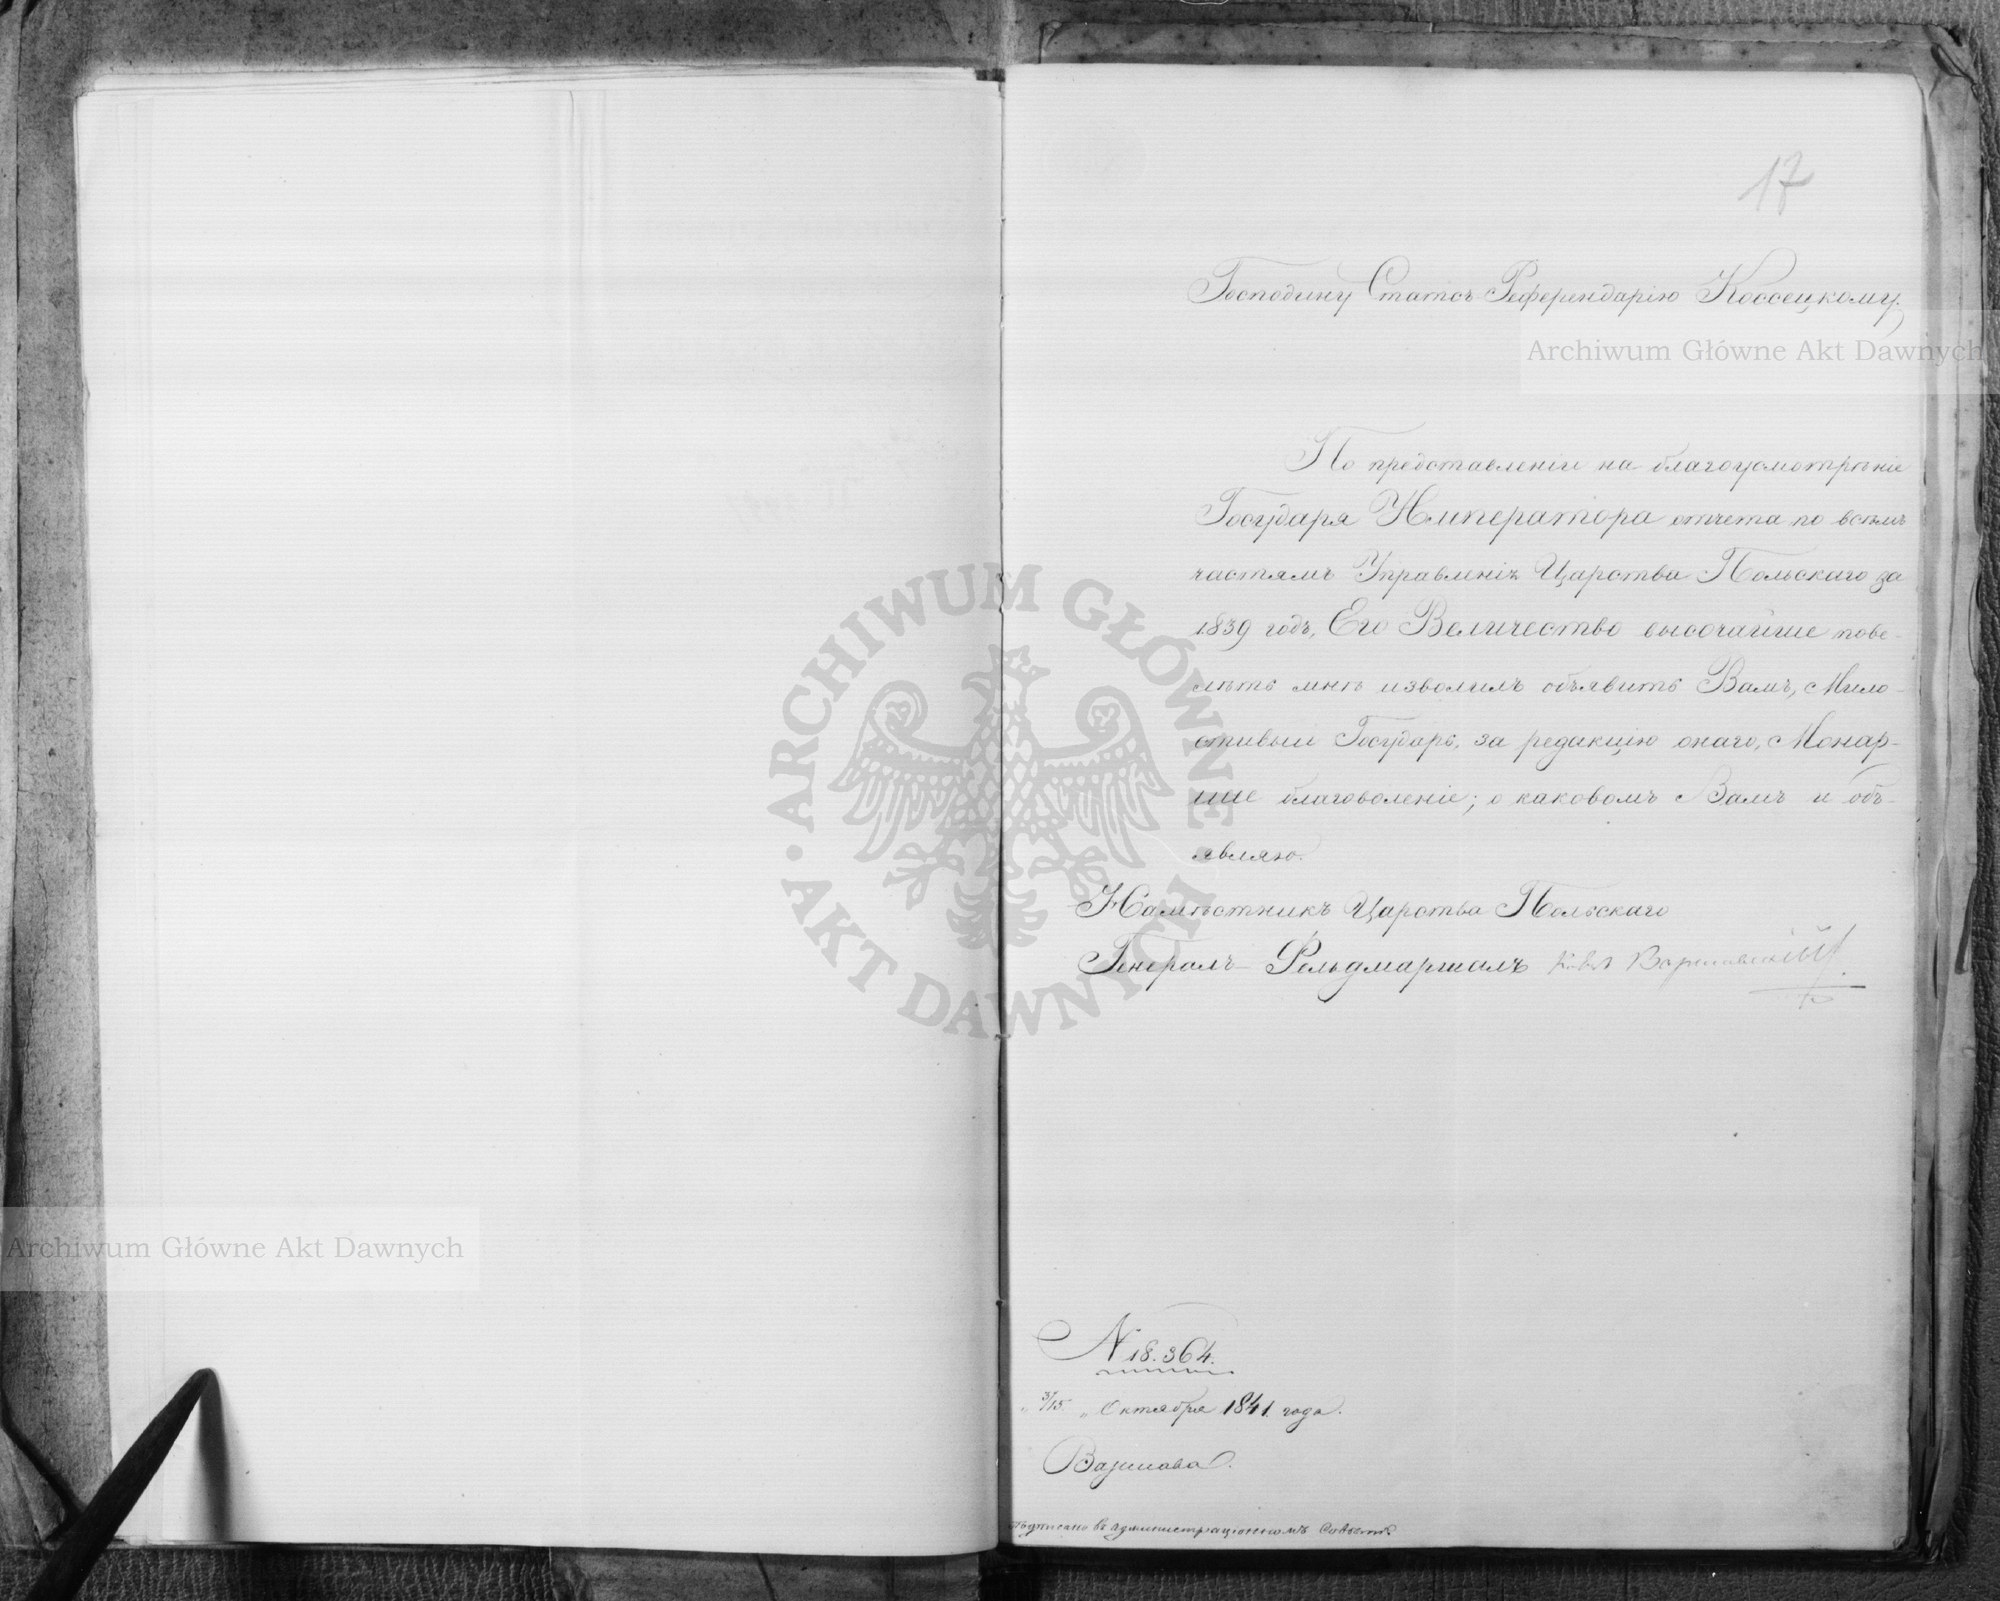 17
Господину Статсъ-Референдарію Коссецкому.
Archiwum Główne Akt Dawnych
По представленіи на благоусмотрѣніе
Государя Императора отчета по всѣмъ
частямъ Управленія Царства Польскаго за
1839 годъ, Его Величество высочайше пове-
лѣть мнѣ изволилъ объявить Вамъ, Мило-
стивый Государь, за редакцію онаго, Монар-
шее благоволеніе; о каковомъ Вамъ и объ-
являю.
Намѣстникъ Царства Польскаго
Генералъ-Фельдмаршалъ Князь Варшавскій
ARCHIWUM GŁÓWNE AKT DAWNYCH
Archiwum Główne Akt Dawnych
N 18.364.
„ 3/15 „ Октября 1841 года.
Варшава.
Подписано въ Административномъ Совѣтѣ